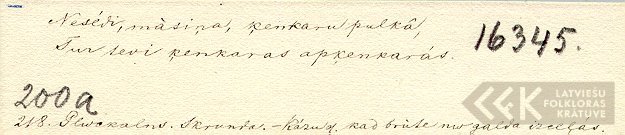 Nesēdi, māsiņa, ķenkaru pulkā,
Tur tevi ķenkaras apķenkarás.
16345.
200a
218. Plwakalns. Skrunda. – Kāzuds, kad brūte nuv galda izceļas.
LATVIEŠU
FOLKLORAS
KRĀTUVE